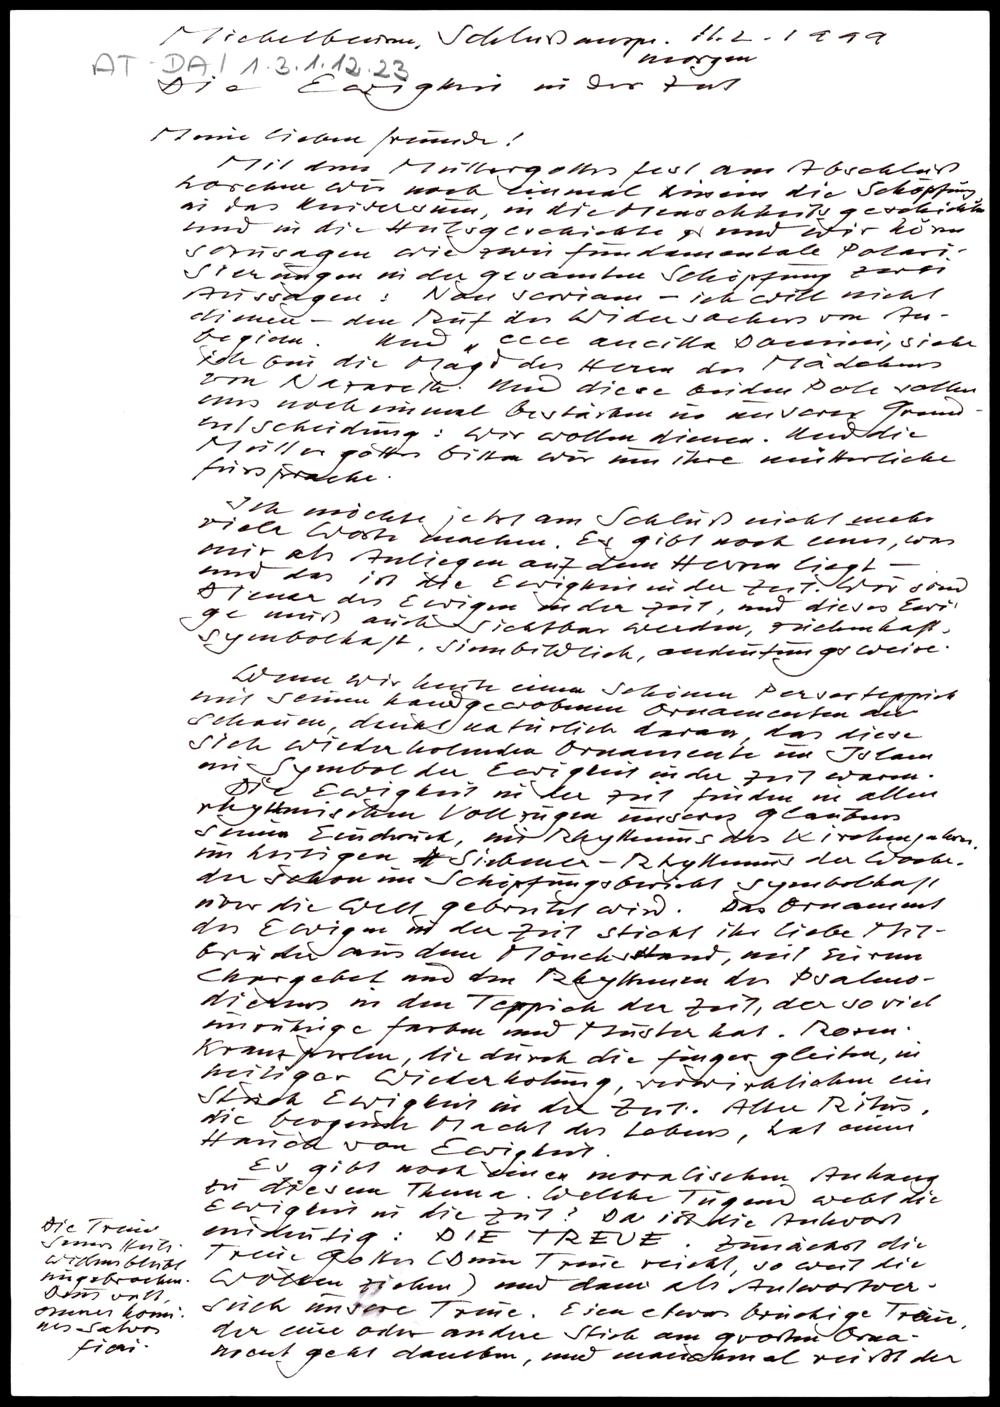 Michelbeuern, Schlußansp. 11.2.1999
morgen
AT-DAI 1.3.1.12.23
Die Ewigkeit in der Zeit
Meine lieben Freunde!
Mit dem Muttergottesfest am Abschluß
horchen wir noch einmal hinein die Schöpfung,
in das Universum, in die Menschheitsgeschichte
und in die Heilsgeschichte und wir hören
sozusagen wie zwei fundamentale Polari-
sierungen in der gesamten Schöpfung zwei
Aussagen: Non serviam - ich will nicht
dienen - den Ruf des Widersachers von An-
beginn. Und "ecce ancilla Domini, siehe
ich bin die Magd des Herrn des Mädchens
von Nazareth. Und diese beiden Pole sollen
uns noch einmal bestärken in unserer Grund-
entscheidung: Wir wollen dienen. Und die
Muttergottes bitten wir um ihre mütterliche
Fürsprache.
Ich möchte jetzt am Schluß nicht mehr
viele Worte machen. Es gibt noch eines, was
mir als Anliegen auf dem Herzen liegt -
und das ist die Ewigkeit in der Zeit. Wir sind
Diener des Ewigen in der Zeit, und dieses Ewi-
ge muß auch sichtbar werden, zeichenhaft,
symbolhaft, sinnbildlich, andeutungsweise.
Wenn wir heute einen schönen Perserteppich
mit seinen handgewobenen Ornamenten
schauen, denkt natürlich daran, das diese
sich wiederholenden Ornamente im Islam
ein Symbol der Ewigkeit in der Zeit waren.
Die Ewigkeit in der Zeit finden in allen
rhythmischen Vollzügen unseres Glaubens
seinen Eindruck, im Rhythmus des Kirchenjahres,
im heiligen Siebener-Rhythmus der Woche,
der schon im Schöpfungsbericht symbolhaft
über die Welt gebreitet wird. Das Ornament
des Ewigen in der Zeit stickt ihr liebe Mit-
brüder aus dem Mönchsstand, mit Eurem
Chorgebet und den Rhythmen des Psalmo-
dierens in den Teppich der Zeit, der so viel
unruhige Farben und Muster hat. Rosen-
kranzperlen, die durch die Finger gleiten, in
heiliger Wiederholung, verwirklichen ein
Stück Ewigkeit in der Zeit. Aller Ritus,
die bergende Macht des Lebens, hat einen
Hauch von Ewigkeit.
Es gibt noch einen moralischen Anhang
zu diesem Thema. Welche Tugend webt die
Ewigkeit in die Zeit? Da ist die Antwort
eindeutig: DIE TREUE. Zunächst die
Treue Gottes (Deine Treue reicht, so weit die
Wolken ziehen) und dann als Antwortver-
such unsere Treue. Eine etwas brüchige Treue,
der eine oder andere Stich am großen Orna-
ment geht daneben, und manchmal reißt der
Die Treue
seines Heils-
willens bleibt
ungebrochen.
Deus vult,
omnes homi-
nes salvos
fieri.